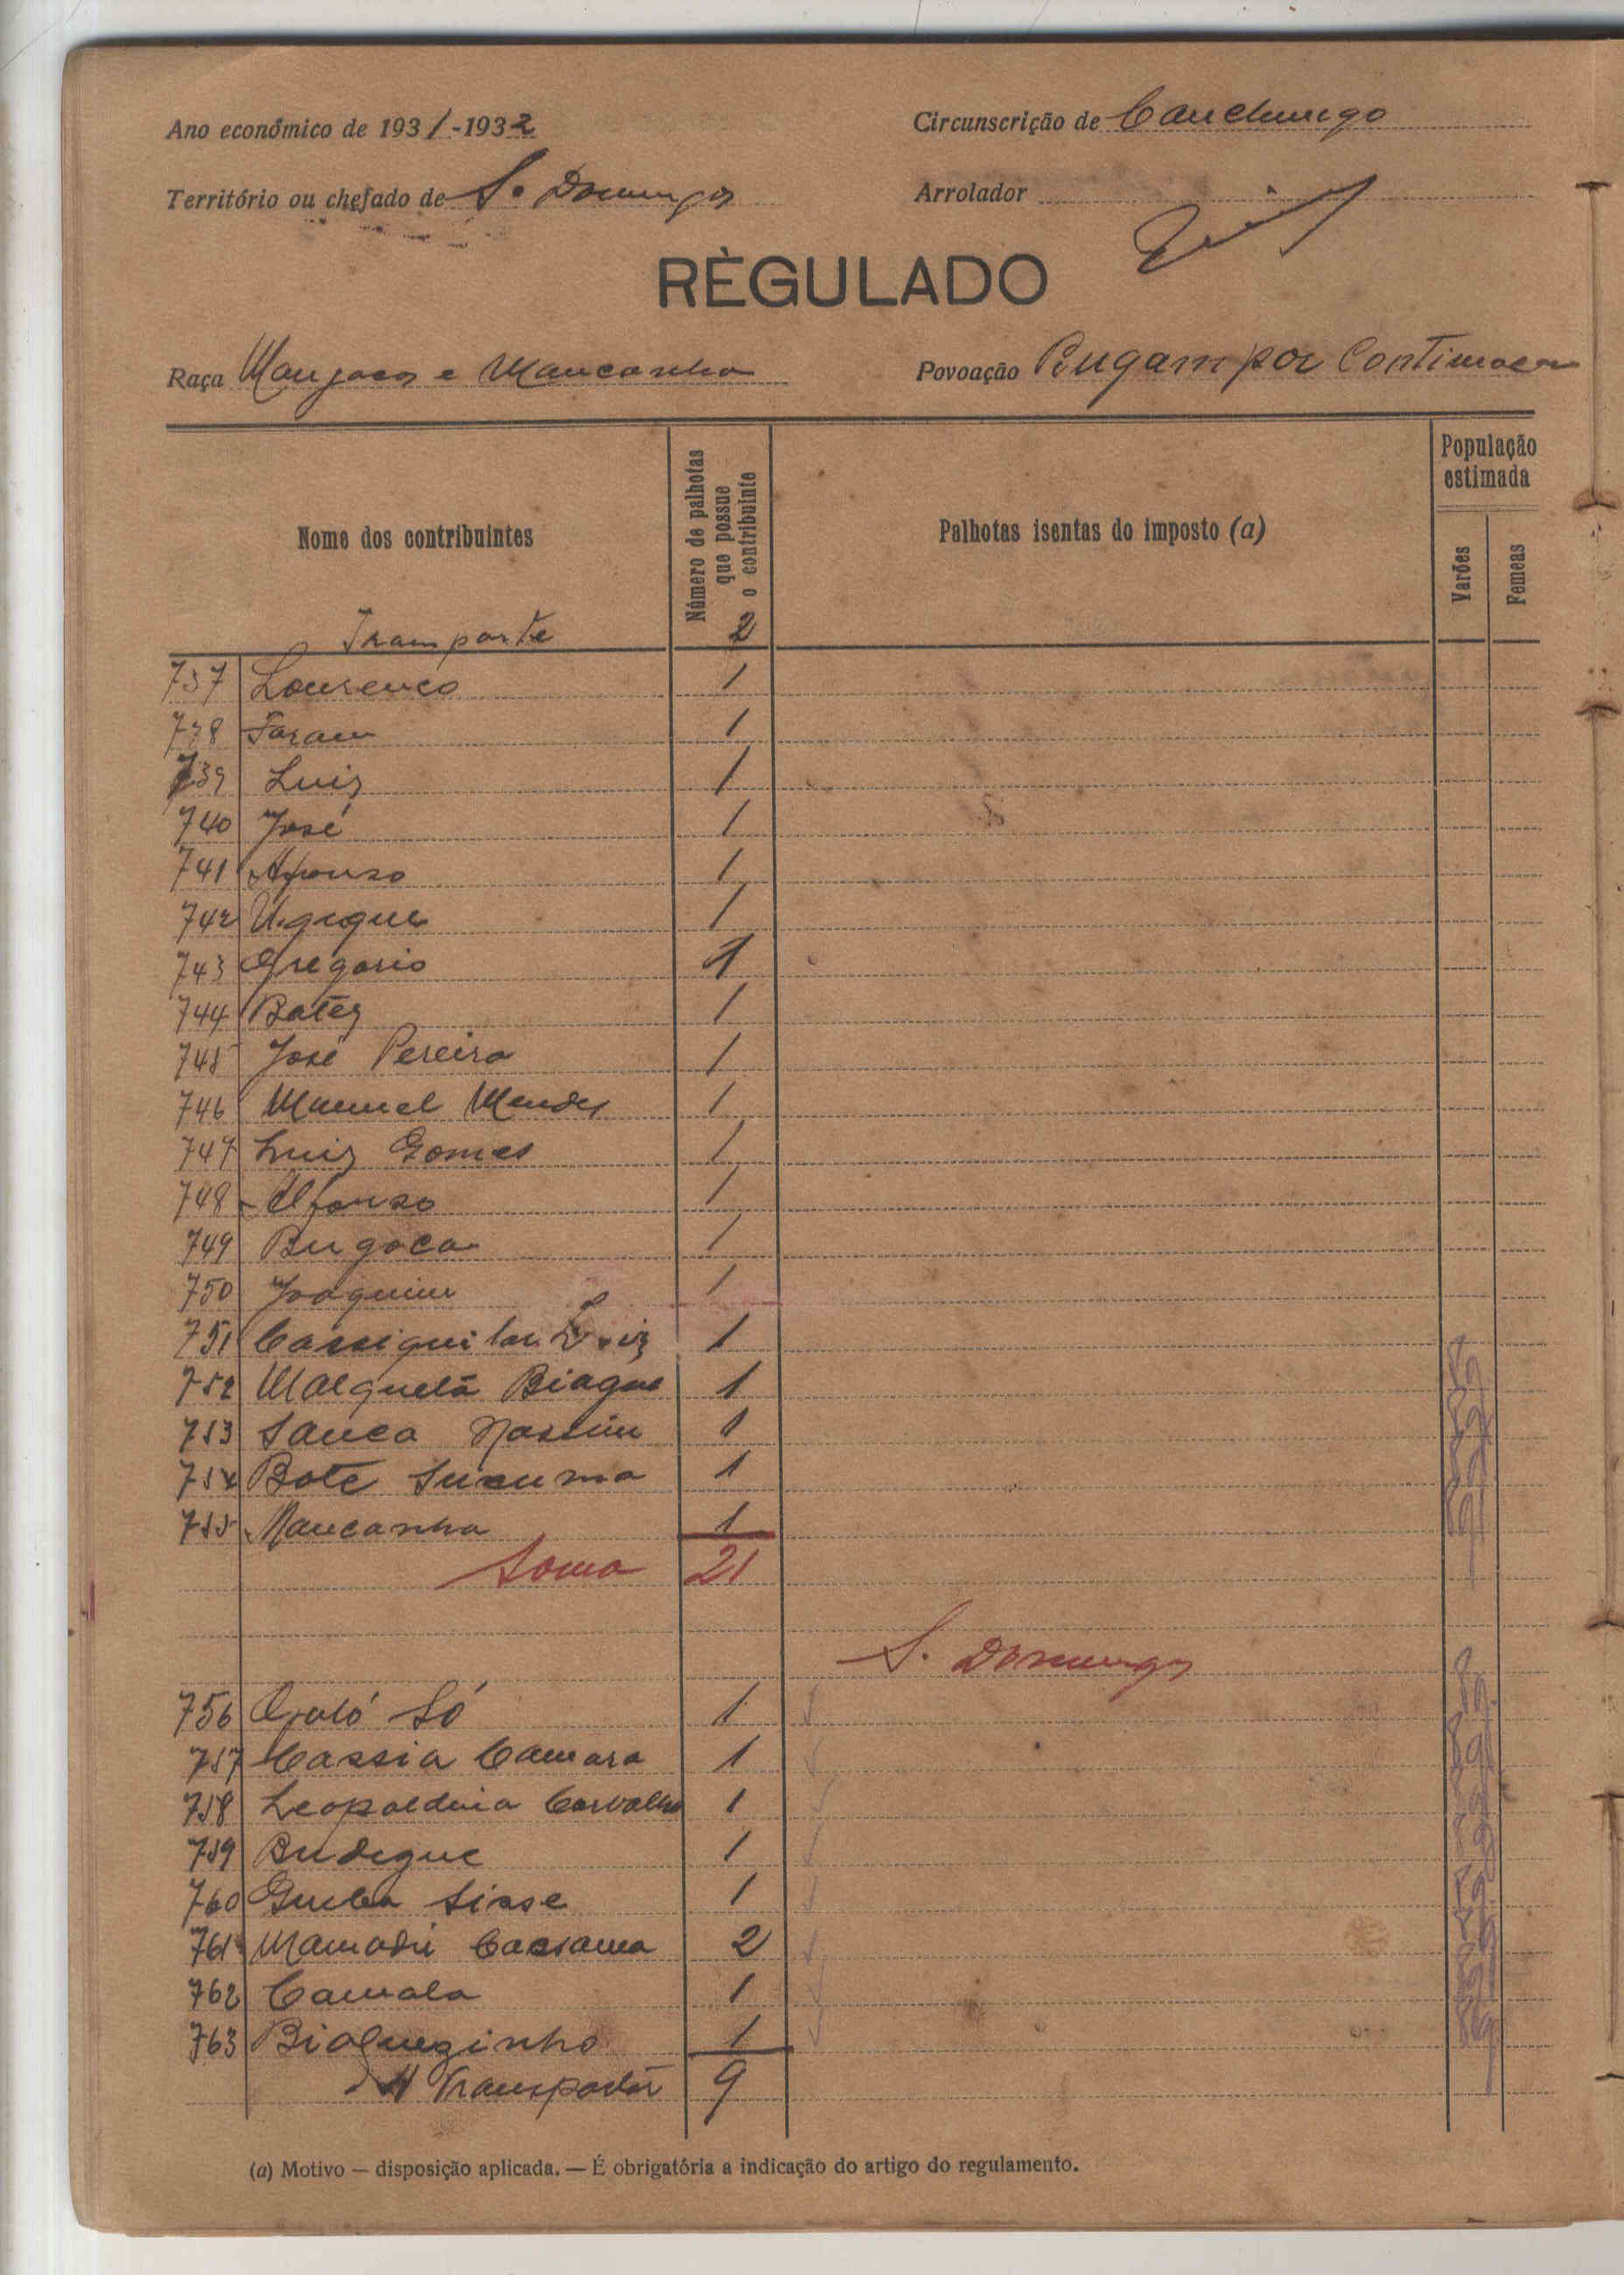 Ano económico de 1931-1932
Circunscrição de Canchungo
Território ou chefado de S. Domingos
Arrolador
RÈGULADO
Raça Manjacos e Mancanha
Povoação Bugampor
Nome dos contribuintes
Número de palhotas que possue o contribuinte
Palhotas isentas do imposto (a)
População estimada
Varões
Femeas
Transporte 2
737 Lourenco 1
738 Faram 1
739 Luiz 1
740 José 1
741 Afonso 1
742 1
743 Gregorio 1
744 Batez 1
745 José Pereira 1
746 Manuel Mendes 1
747 Luiz Gomes 1
748 Afonso 1
749 Bugoca 1
750 Joaquim 1
751 Luiz 1
752 Biague 1
753 Sanca 1
754 Bote 1
755 Mancanha 1
Soma 21
S. Domingos
756 Só 1
757 Cassia Camara 1
758 Leopoldina Carvalho 1
759 Budegue 1
760 Sisse 1
761 Mamadú Cassama 2
762 Camala 1
763 1
A Transportar 9
(a) Motivo — disposição aplicada. — É obrigatória a indicação do artigo do regulamento.